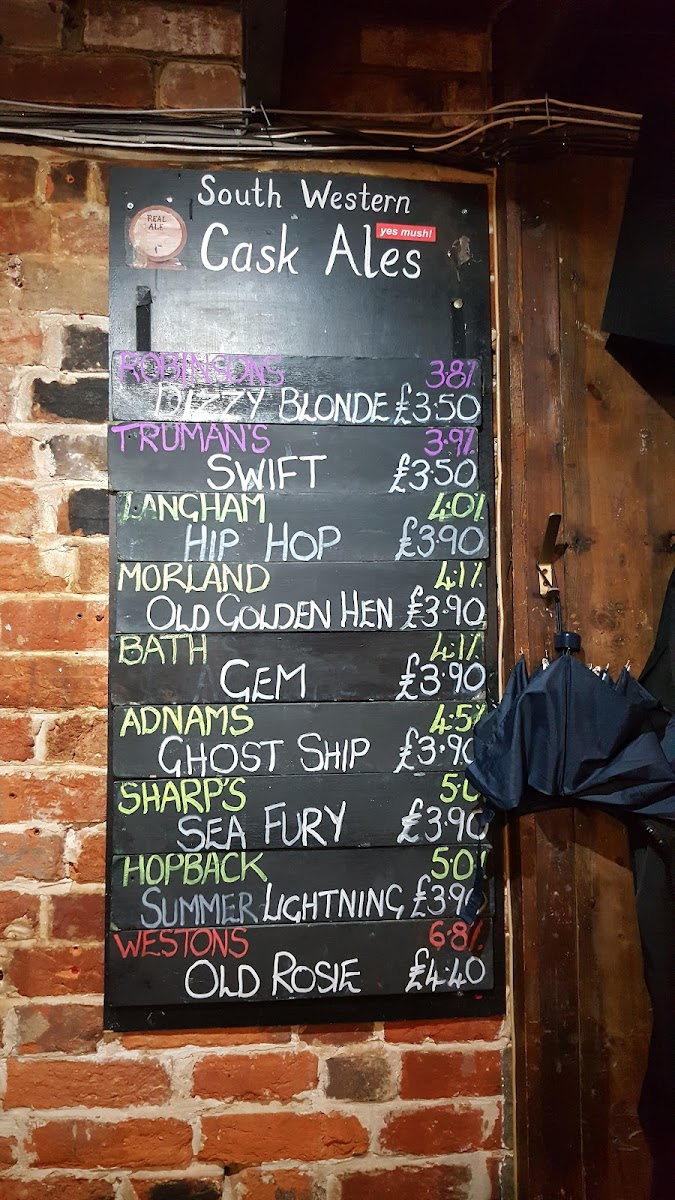 South Western
REAL
ALE
yes mush!
Cask Ales
ROBINSONS 3.8%
DIZZY BLONDE £3.50
TRUMAN'S 3.9%
SWIFT £3.50
LANGHAM 4.0%
HIP HOP £3.90
MORLAND 4.1%
OLD GOLDEN HEN £3.90
BATH 4.1%
GEM £3.90
ADNAMS 4.5%
GHOST SHIP £3.90
SHARP'S 5.0
SEA FURY £3.90
HOPBACK 5.0%
SUMMER LIGHTNING £3.90
WESTONS 6.8%
OLD ROSIE £4.40